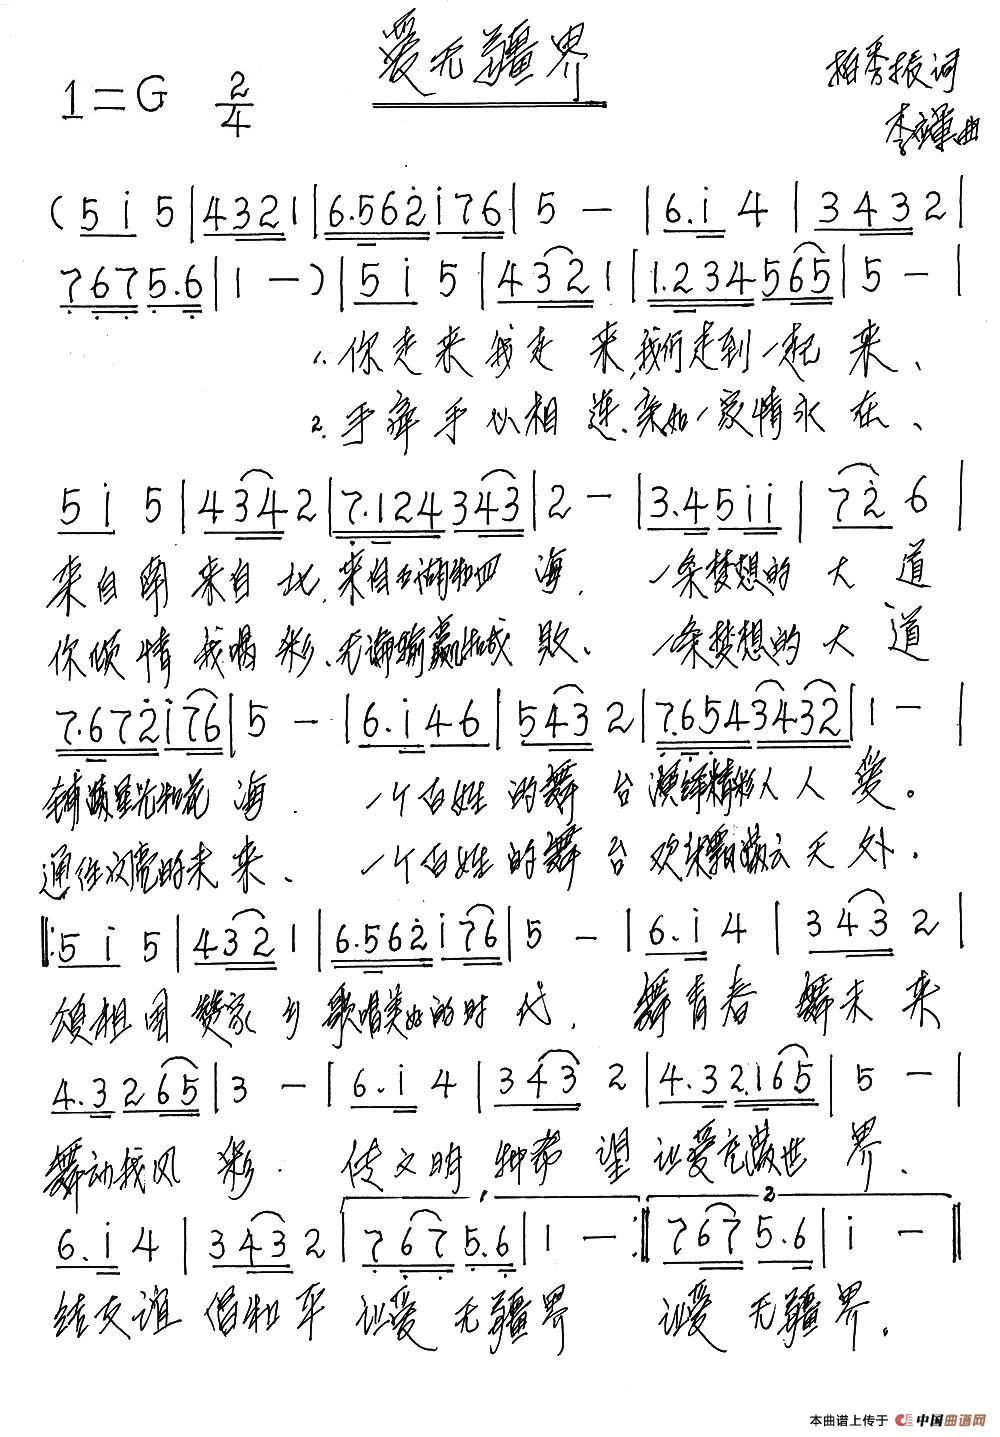 爱无疆界
1=G 2/4
柏秀振词
曲
(5 i 5|4 3 2 1|6.5 6 2 i 7 6|5 -|6.i 4|3 4 3 2|
7 6 7 5.6|1 -)|5 i 5|4 3 2 1|1.2 3 4 5 6 5|5 -|
1.你走来我走来,我们走到一起来、
2.手牵手心相连、亲如一家情永在、
5 i 5|4 3 4 2|7.1 2 4 3 4 3|2 -|3.4 5 i i|7 2 6|
来自南来自北,来自五湖和四海.一条梦想的大道
你倾情我喝彩、无论输赢和成败、一条梦想的大道
7.6 7 2 i 7 6|5 -|6.i 4 6|5 4 3 2|7.6 5 4 3 4.3 2|1 -|
铺满星光和花海.一个百姓的舞台演绎精彩人人爱。
通往闪亮的未来、一个百姓的舞台欢舞云天外.
‖:5 i 5|4 3 2 1|6.5 6 2 i 7 6|5 -|6.i 4|3 4 3 2|
颂祖国赞家乡歌唱美好的时代,舞青春舞未来
4.3 2 6 5|3 -|6.i 4|3 4 3 2|4.3 2.1 6 5|5 -|
舞动我风彩.传文明种希望让爱充满世界、
1. 2
6.i 4|3 4 3 2|7 6 7 5.6|1 -:‖7 6 7 5.6|i -‖
结友谊倡和平让爱无疆界 让爱无疆界.
本曲谱上传于 中国曲谱网